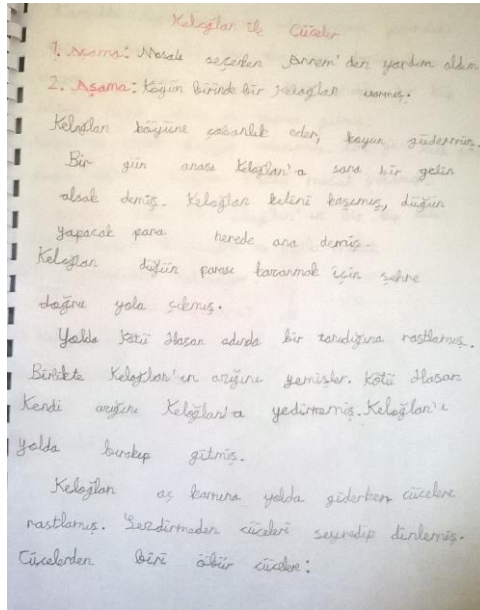 Keloğlan ile Cüceler
1. Aşama: Masalı seçerken Annem'den yardım aldım
2. Aşama: Köyün birinde bir Keloğlan varmış.
Keloğlan köyüne çobanlık eder, koyun güdermiş.
Bir gün anası Keloğlan'a sana bir gelin
alsak demiş. Keloğlan kelini kaşımış, düğün
yapacak para nerede ana demiş.
Keloğlan düğün parası kazanmak için şehre
doğru yola çıkmış.
Yolda Kötü Hasan adında bir tanıdığına rastlamış.
Birlikte Keloğlan'ın azığını yemişler. Kötü Hasan
Kendi azığını Keloğlan'a yedirmemiş. Keloğlan'ı
yolda bırakıp gitmiş.
Keloğlan aç karnına yolda giderken cücelere
rastlamış. Sezdirmeden cüceleri seyredip dinlemiş.
Cücelerden biri öbür cücelere: